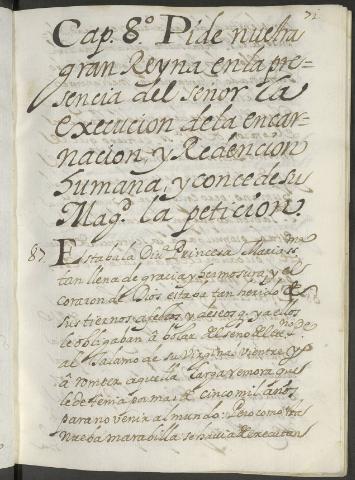 71
Cap. 8.º Pide nuestra
gran Reyna en la pre=
sencia del señor la
execucion de la encar=
nacion, y Redencion
humana, y concede su
Mag.ᵈ la peticion.
87 Estaba la Div.ª Princesa Maria SS.ma
tan llena de gracia y hermosura, y el
corazon de Dios estaba tan herido de
sus tiernos afectos, y deseos q.e ya ellos
le obligaban á bolar del seno del eterno P.e
al talamo de su Virginal vientre y
á romper aquella larga remora que
le detenia por mas de cinco mil años
para no venir al mundo. Pero como esta
nueba marabilla se havia de executar